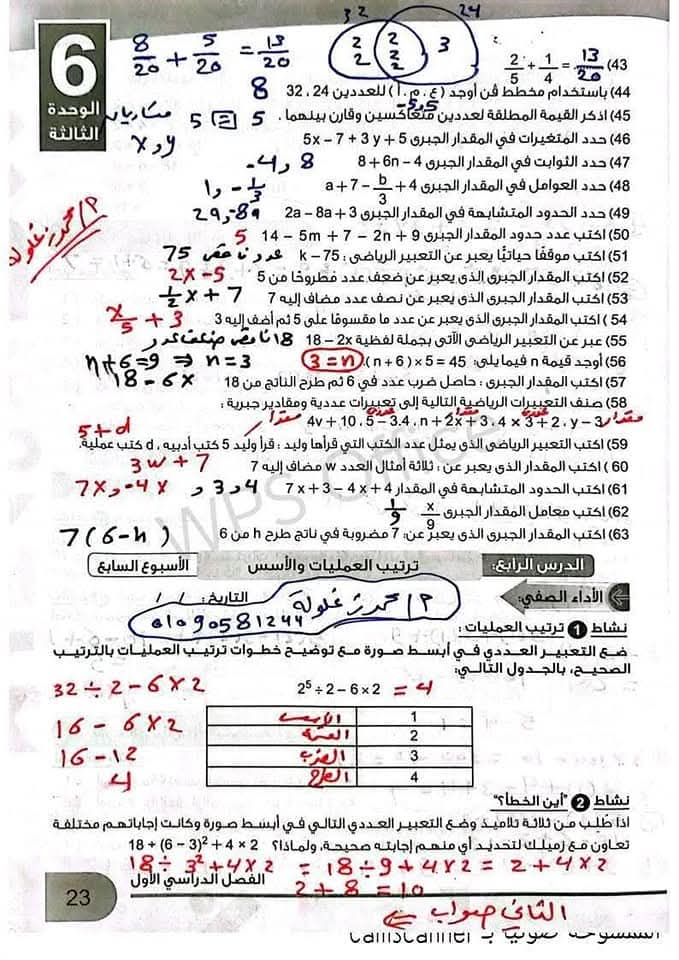 6
الوحدة
الثالثة
32 24
2 2 2 2 2 3
8/20 + 5/20 = 13/20
43) 2/5 + 1/4 = 13/20
44) باستخدام مخطط ڤن أوجد (ع . م . أ) للعددين 24 ، 32 8
45) اذكر القيمة المطلقة لعددين متعاكسين وقارن بينهما . -5, 5 5 = 5 متساويان
46) حدد المتغيرات في المقدار الجبرى 5x – 7 + 3y + 5 x و y
47) حدد الثوابت في المقدار الجبرى 8 + 6n – 4 -4 و 8
48) حدد العوامل في المقدار الجبرى a + 7 – b/3 + 4 1 و -1/3
49) حدد الحدود المتشابهة في المقدار الجبرى 2a – 8a + 3 2a و -8a
50) اكتب عدد حدود المقدار الجبرى 14 – 5m + 7 – 2n + 9 5
51) اكتب موقفًا حياتيًا يعبر عن التعبير الرياضى : k – 75 عدد ناقص 75
52) اكتب المقدار الجبرى الذى يعبر عن ضعف عدد مطروحًا من 5 2x – 5
53) اكتب المقدار الجبرى الذى يعبر عن نصف عدد مضاف إليه 7 1/2 x + 7
54 ) اكتب المقدار الجبرى الذى يعبر عن عدد ما مقسومًا على 5 ثم أضف إليه 3 x/5 + 3
55) عبر عن التعبير الرياضى الآتى بجملة لفظية 18 – 2x 18 ناقص ضعف عدد
56) أوجد قيمة n فيما يلى: 45 = 5 × (n + 6) . 3 = n n + 6 = 9 ⇒ n = 3
57) اكتب المقدار الجبرى : حاصل ضرب عدد في 6 ثم طرح الناتج من 18 18 – 6x
58) صنف التعبيرات الرياضية التالية إلى تعبيرات عددية ومقادير جبرية :
4v + 10 ، 5 – 3.4 ، n + 2x + 3 ، 4 × 3 + 2 ، y – 3 مقدار عددى مقدار عددى مقدار
59) اكتب التعبير الرياضي الذى يمثل عدد الكتب التي قرأها وليد : قرأ وليد 5 كتب أدبيه ، d كتب عملية. 5 + d
60 ) اكتب المقدار الذى يعبر عن : ثلاثة أمثال العدد w مضاف إليه 7 3w + 7
61) اكتب الحدود المتشابهة في المقدار 7x + 3 – 4x + 4 3 و 4 و 7x و -4x
62) اكتب معامل المقدار الجبرى x/9 1/9
63) اكتب المقدار الجبرى الذى يعبر عن: 7 مضروبة في ناتج طرح h من 6 7(6-h)
WPS Office
الدرس الرابع: ترتيب العمليات والأسس الأسبوع السابع
الأداء الصفي: التاريخ: / /
م/ محمد زغلولة
01090581244
نشاط 1 ترتيب العمليات :
ضع التعبير العددي في أبسط صورة مع توضيح خطوات ترتيب العمليات بالترتيب
الصحيح، بالجدول التالي:
2⁵ ÷ 2 – 6 × 2 = 4
32 ÷ 2 – 6 × 2
16 – 6 × 2
16 – 12
4
1 الأسس
2 القسمة
3 الضرب
4 الطرح
نشاط 2 "أين الخطأ؟"
اذا طُلِب من ثلاثة تلاميذ وضع التعبير العددي التالي في أبسط صورة وكانت إجاباتهم مختلفة
تعاون مع زميلك لتحديد أي منهم إجابته صحيحة، ولماذا؟ 18 ÷ (6 – 3)² + 4 × 2
18 ÷ 3² + 4 × 2 = 18 ÷ 9 + 4 × 2 = 2 + 4 × 2
2 + 8 = 10
الفصل الدراسي الأول
23
الثاني صواب
الممسوحة ضوئيا بـ CamScanner